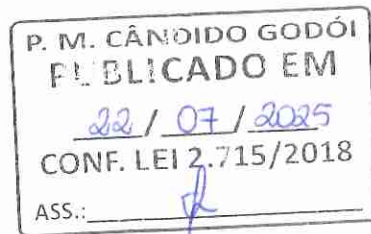 P. M. CÂNDIDO GODÓI
PUBLICADO EM
22 / 07 / 2025
CONF. LEI 2.715/2018
ASS.: